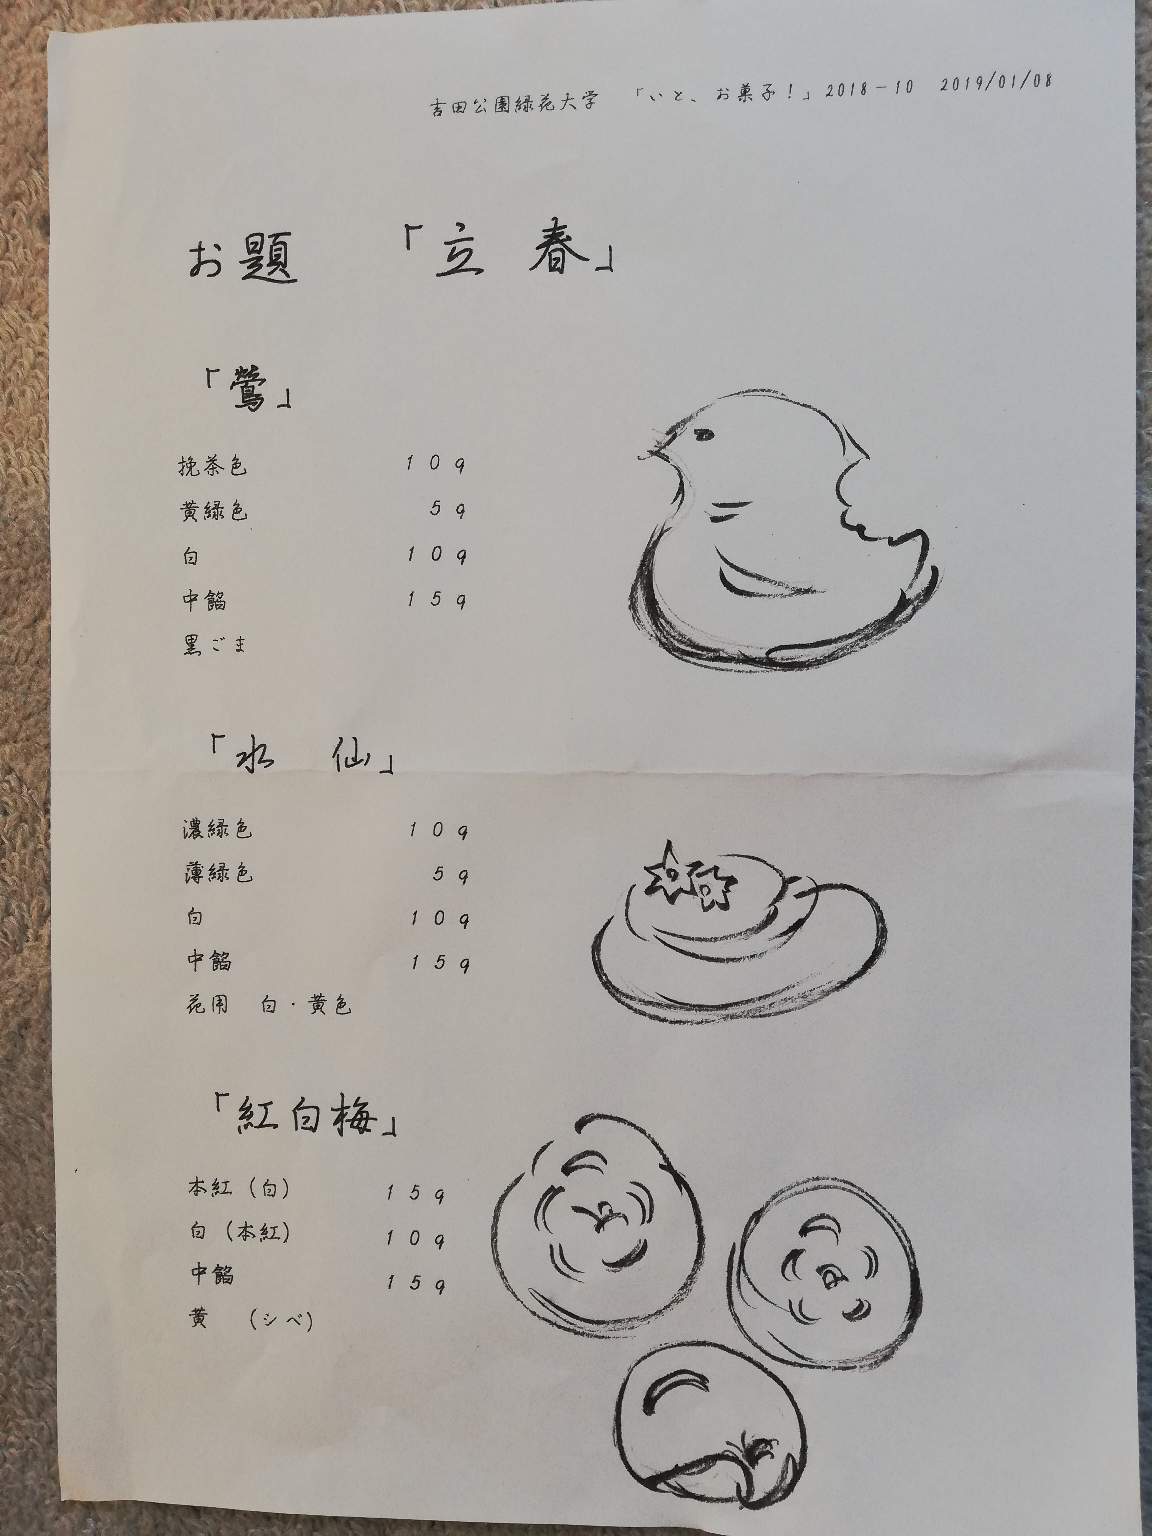 吉田公園緑花大学　「いと、お菓子！」2018－10　2019/01/08
お題　「立　春」
「鶯」
挽茶色　10g
黄緑色　5g
白　10g
中餡　15g
黒ごま
「水　仙」
濃緑色　10g
薄緑色　5g
白　10g
中餡　15g
花用　白・黄色
「紅白梅」
本紅（白）　15g
白（本紅）　10g
中餡　15g
黄　（シベ）